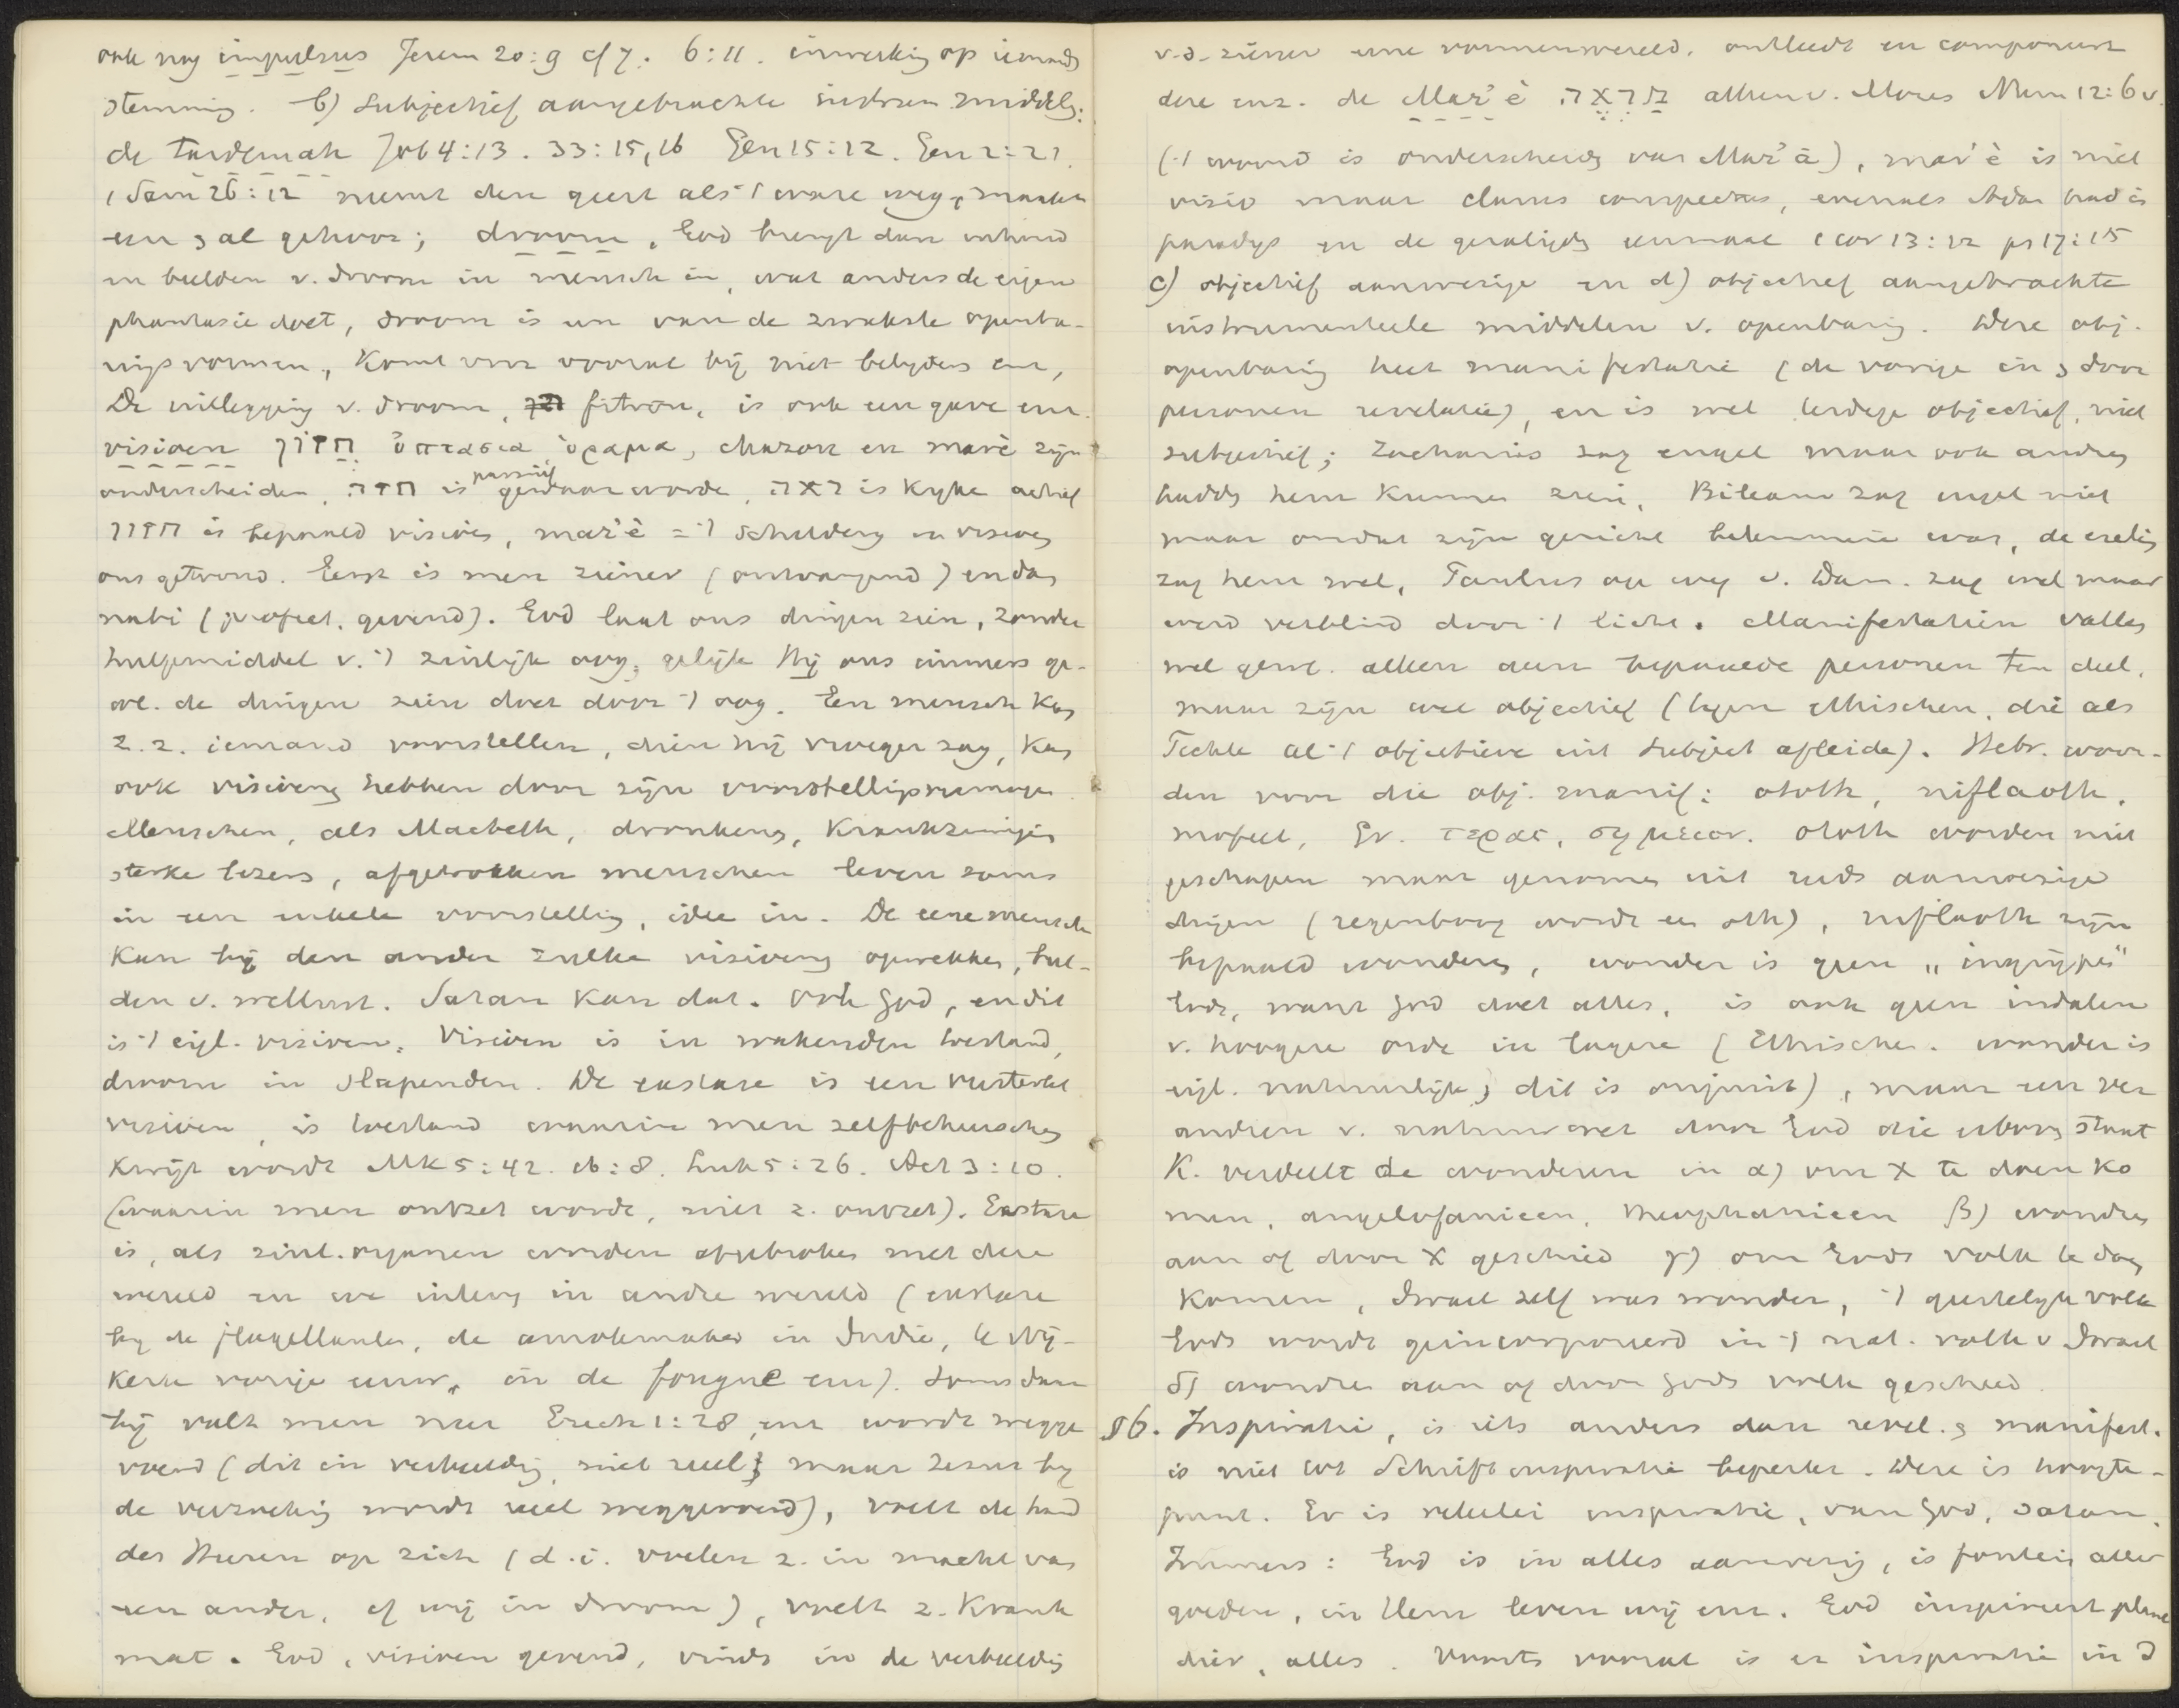 ook nog impulsus Jerem 20:9 cf 7. 6:11. inwerking op iemands
stemming. b) Subjectief aangebrachte instrum middelen:
de tardemah Job 4:13. 33:15,16 Gen 15:12. Gen 2:21.
1 Sam 26:12 neemt den geest als 't ware weg, maakt
een zal gehoor; droom, God brengt dan inhoud
en beelden v. droom in mensch in, wat anders de eigen
phantasie doet, droom is een van de zwakste openba-
ringsvormen, komt voor vooral bij niet belijders enz,
De uitlegging v. droom, fitron, is ook een gave enz.
visioen חזון ὀπτασία ὅραμα, chazon en mar'è zijn
onderscheiden, חזה is passief gewaar worde, ראה is kijke actief
חזון is bepaald visioen, mar'è = 't schilderij in visioen
ons getoond. Eerst is men ziener (ontvangend) en dan
nabi (profeet, gevend). God laat ons dingen zien, zonder
hulpmiddel v. 't zinlijk oog, gelijk Hij ons immers ge-
w. de dingen zien doet door 't oog. Een mensch kan
z.z. iemand voorstellen, dien hij vroeger zag, kan
ook visioenen hebben door zijn voorstellingsvermogen
Menschen, als Macbeth, dronkens, krankzinnigen
sterke lezers, afgetrokken menschen leven soms
in een enkele voorstelling, idee in. De eene mensch
kan bij den ander zulke visioenen opwekken, beel-
den v. wellust. Satan kan dat. Ook God, en dit
is 't eigl. visioen. Visioen is in wakenden toestand,
droom in slapenden. De extase is een versterkt
visioen, is toestand waarin men zelfbeheersching
kwijt wordt Mk 5:42. 16:8. Luk 5:26. Act 3:10.
(waarin men ontzet wordt, niet z. ontzet). Extase
is, als zinl. organen worden afgebroken met deze
wereld en we inleven in andre wereld (extase
bij de flagellanten, de amokmaker in Indië, te Wij-
kerk vorige eeuw, in de fougue enz). Soms dan
bij valt men neer Ezech 1:28, enz wordt wegge
voerd (dit in verbeelding, niet reeel; maar Jezus bij
de verzoeking wordt reeel weggevoerd), voelt de hand
des Heeren op zich (d.i. voelen z. in macht van
een ander, cf wij in droom), voelt z. krank
mat. God, visioen gevend, vindt in de verbeelding
v.d. ziener eene vormenwereld, ontleedt en componeert
deze enz. de Mar'è מַרְאֶה alleen v. Mozes Num 12:6v.
('t woord is onderscheiden van Mar'ā), mar'è is niet
visio maar clarus conspectus, evenals Adam had in
paradijs en de geraligde eenmaal 1 Cor 13:12 ps 17:15
c) objectief aanwezige en d) objectief aangebrachte
instrumenteele middelen v. openbaring. Deze obj.
openbaring heet manifestatie (de vorige in & door
personen revelatie), en is wel terdege objectief, niet
subjectief; Zacharias zag engel maar ook andren
hadden hem kunnen zien, Bileam zag engel niet
maar omdat zijn gezicht belemmerd was, de ezelin
zag hem wel, Paulus op weg v. Dam. zag wel maar
werd verblind door 't licht. Manifestatien vallen
wel gew. alleen aan bepaalde personen ten deel,
maar zijn wel objectief (tegen ethischen, die als
Fichte al 't objectieve uit subject afleide). Hebr. woor-
den voor die obj. manif: ototh, niflaoth,
mofeet, Gr. τερας, σημειον. Ototh worden niet
geschapen maar genomen uit reeds aanwezige
dingen (regenboog wordt een oth), niflaoth zijn
bepaald wonderen, wonder is geen „ingrijpen"
Gods, want God doet alles, is ook geen indalen
v. hoogere orde in lagere (Ethischen. wonder is
eigl. natuurlijk; dit is onjuist), maar een ver
andren v. natuurwet door God die erboven staat
K. verdeelt de wonderen in α) om X te doen ko
men, angelofanieen, theophanieen β) wondren
aan of door X geschied γ) om Gods volk te doen
komen, Israel zelf was wonder, 't geestelijk volk
Gods wordt geincorporeerd in 't nat. volk v Israel
δ) wondren aan of door Gods volk geschied.
§6. Inspiratie, is iets anders dan revel. & manifest.
is niet tot Schriftinspiratie beperkt. Deze is hoogte-
punt. Er is velerlei inspiratie, van God, Satan.
Immers: God is in alles aanwezig, is fontein aller
goeden, in Hem leven wij enz. God inspireert plant
dier, alles. Voorts vooral is er inspiratie in d